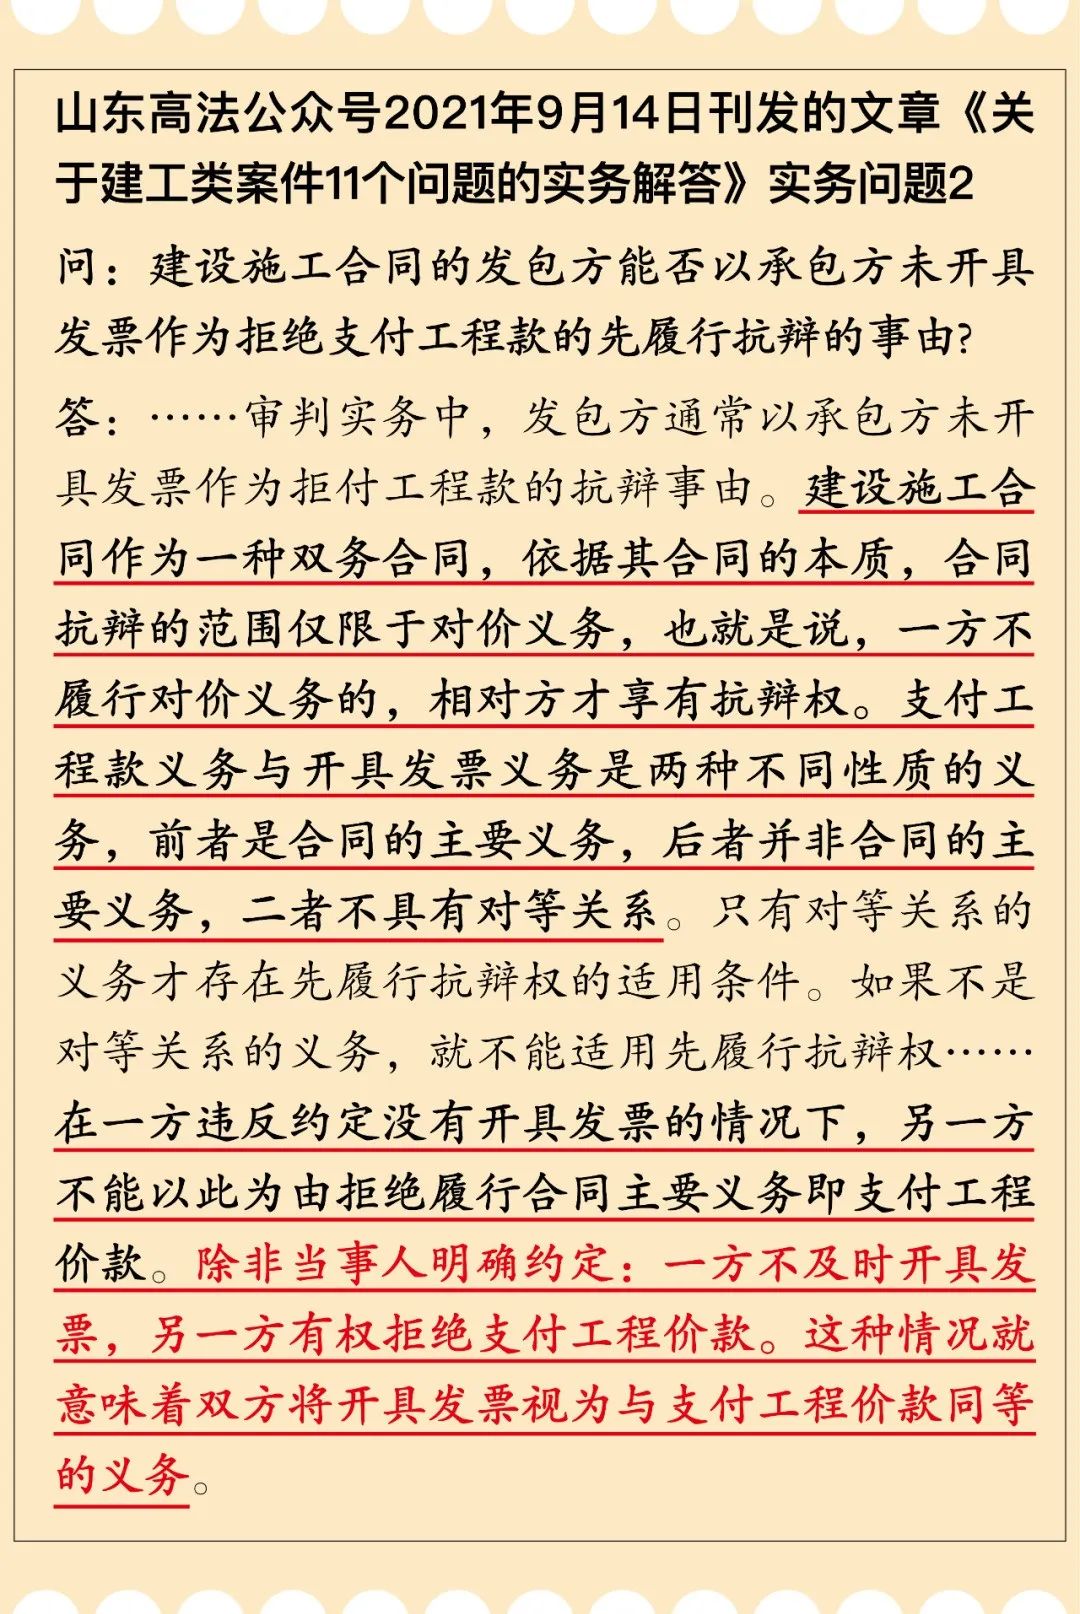 山东高法公众号2021年9月14日刊发的文章《关
于建工类案件11个问题的实务解答》实务问题2
问：建设施工合同的发包方能否以承包方未开具
发票作为拒绝支付工程款的先履行抗辩的事由?
答：……审判实务中，发包方通常以承包方未开
具发票作为拒付工程款的抗辩事由。建设施工合
同作为一种双务合同，依据其合同的本质，合同
抗辩的范围仅限于对价义务，也就是说，一方不
履行对价义务的，相对方才享有抗辩权。支付工
程款义务与开具发票义务是两种不同性质的义
务，前者是合同的主要义务，后者并非合同的主
要义务，二者不具有对等关系。只有对等关系的
义务才存在先履行抗辩权的适用条件。如果不是
对等关系的义务，就不能适用先履行抗辩权……
在一方违反约定没有开具发票的情况下，另一方
不能以此为由拒绝履行合同主要义务即支付工程
价款。除非当事人明确约定：一方不及时开具发
票，另一方有权拒绝支付工程价款。这种情况就
意味着双方将开具发票视为与支付工程价款同等
的义务。